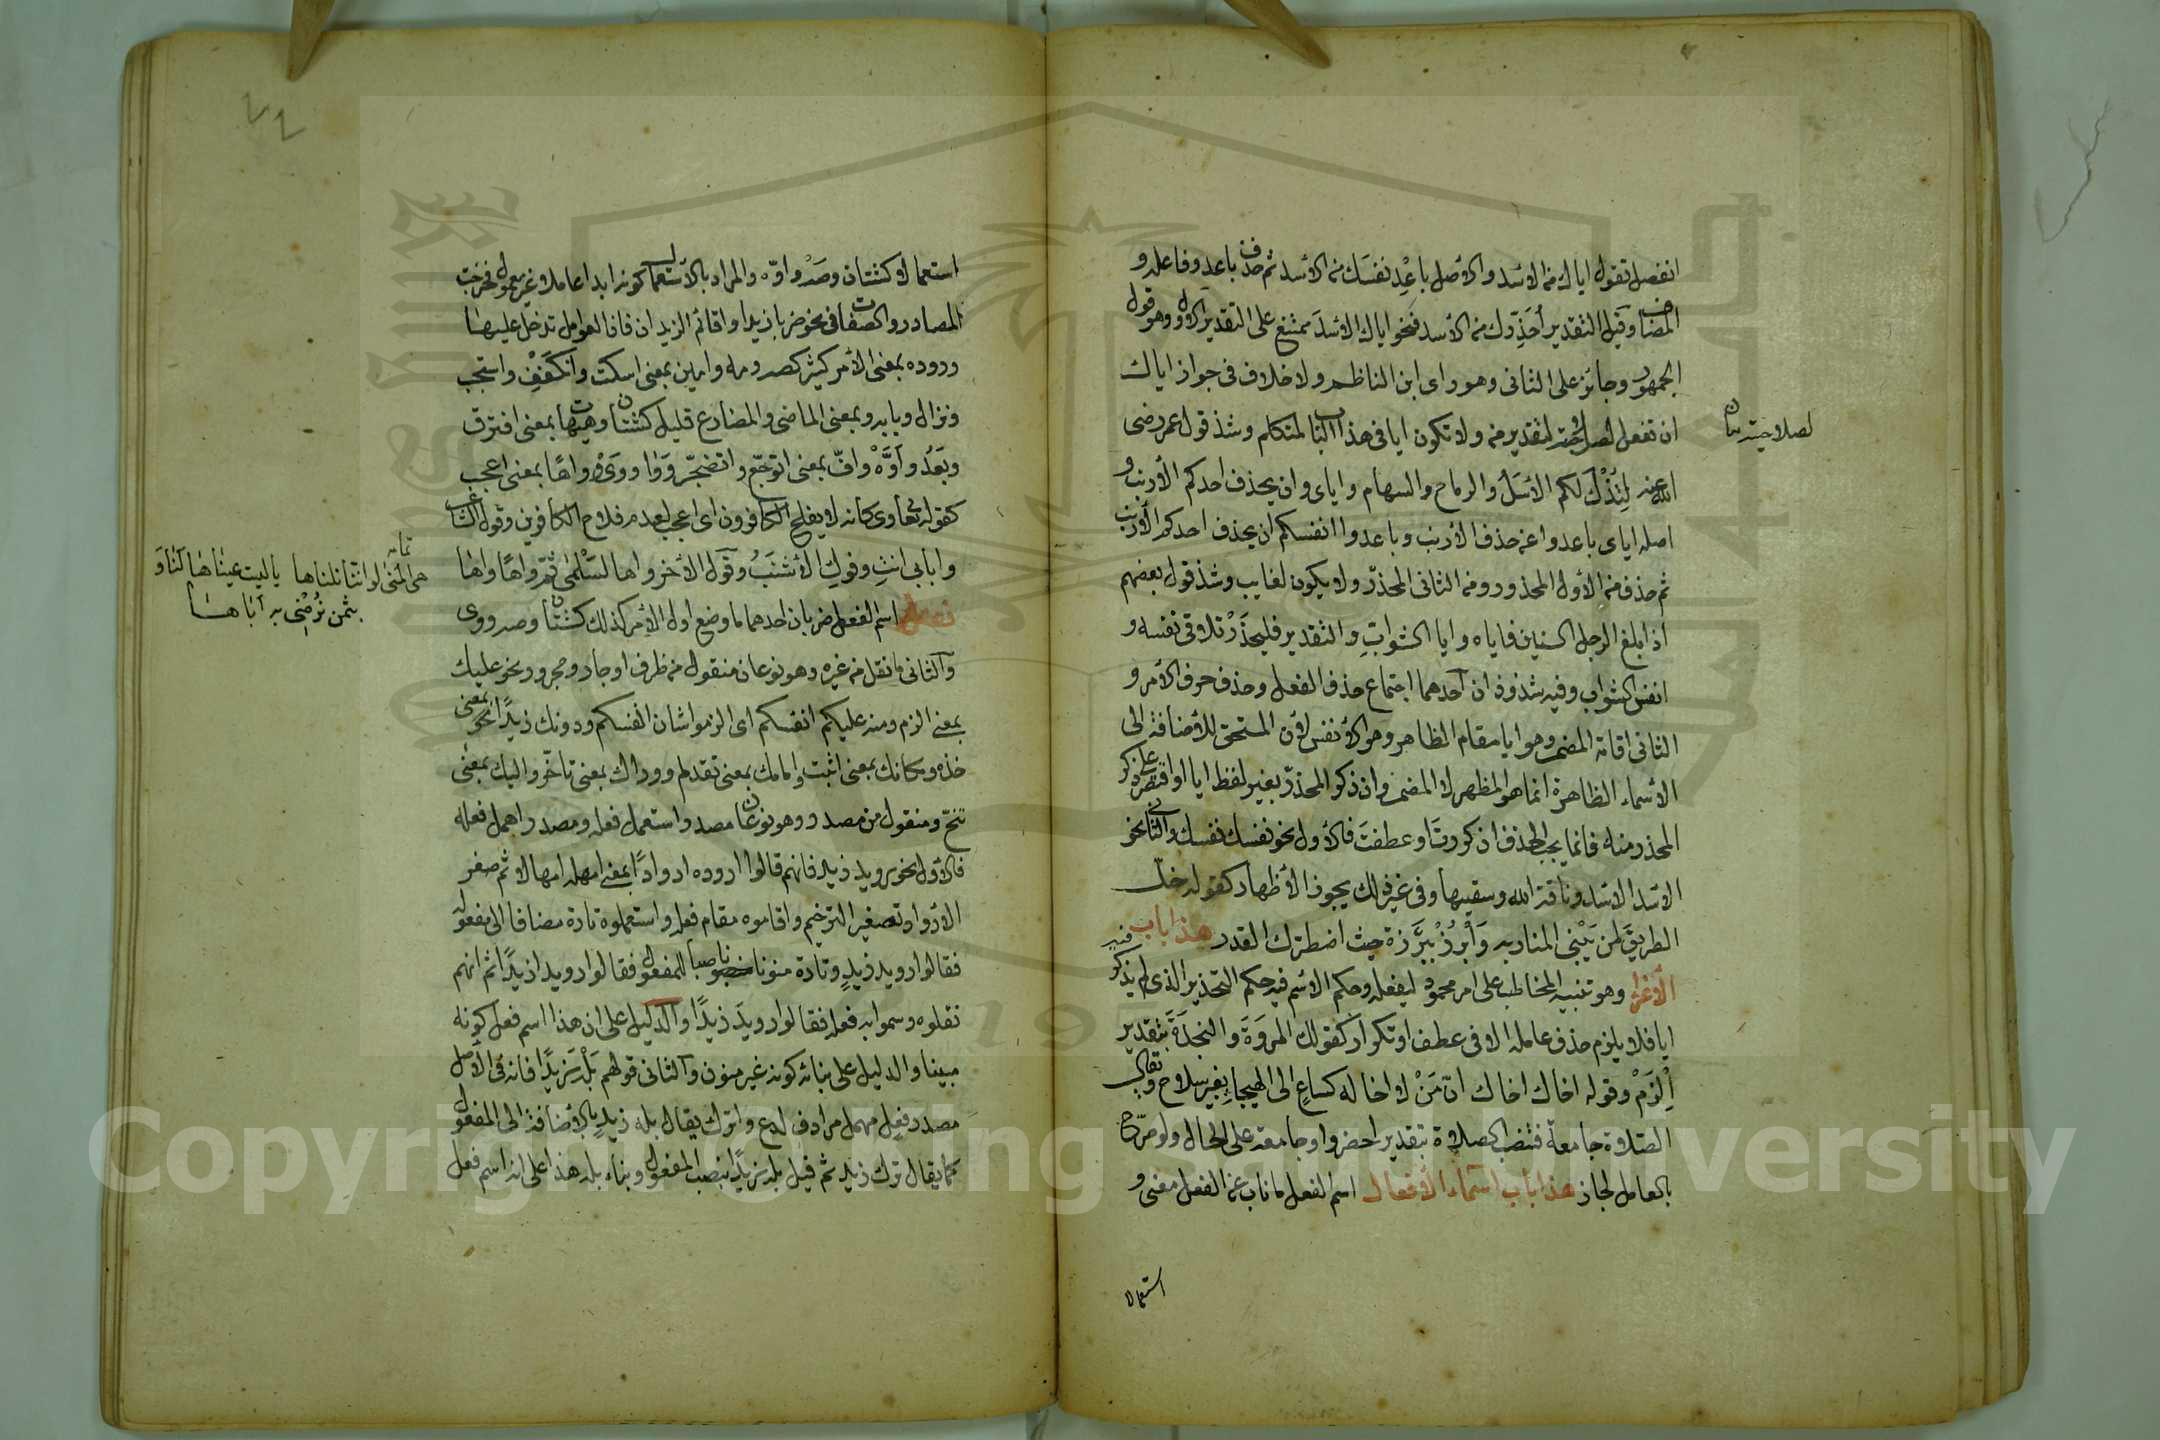 انفصل تقول اياك من الاسد والاصل باعِد نفسَك من الاسد ثم حذف باعد وفاعله و
المضاف وقيل التقدير أحذّرك من الاسد فنحو اياك الاسدَ ممتنع على التقدير الاول وهو قول
الجمهور وجائز على الثاني وهو راى ابن الناظم ولا خلاف في جواز اياك
ان تفعل لصلاحيته لتقدير من ولا تكون ايا في هذا الباب لمتكلم وشذ قول عمر رضى
الله عنه لِتُذْكَ لكم الاسَلُ والرماح والسهام واياى وان يحذف احدكم الأرنب و
اصله اياى باعدوا عن حذف الارنب وباعدوا انفسكم ان يحذف احدكم الأرنب
ثم حذف من الأول المحذور ومن الثاني المحذّر ولا يكون لغايب وشذ قول بعضهم
اذا بلغ الرجل الستين فاياه وايا الشوابِّ والتقدير فليحذَرْ تلاقي نفسه و
انفس الشواب وفيه شذوذان احدهما اجتماع حذف الفعل وحذف حرف الامر و
الثاني اقامة المضمر وهو ايا مقام الظاهر وهو الأنفس لأن المستحق للأضافة الى
الاسماء الظاهرة انما هو المظهر لا المضمر وان ذكر المحذّر بغير لفظ ايا او اقتصر على ذكر
المحذر منه فانما يجب الحذف ان كررتَ او عطفتَ فالأول نحو نفسك نفسك والثاني نحو
الاسد الاسد وناقة الله وسقيها وفي غير ذلك يجوز الأظهار كقوله خلّ
الطريقَ لمن يَبْني المنار به وَأبْرُزْ ببَرْزة حيث اضطرك القدر هذا باب
الأغراء وهو تنبيه المخاطب على امر محمود ليفعله وحكم الاسم فيه حكم التحذير الذى لم يذكر فيه
ايا فلا يلزم حذف عامله الا في عطف او تكرار كقولك المروَةَ والنجدَةَ بتقدير
اِلْزَمْ وقوله اخاك اخاك انّ مَنْ لا اخا له كساعٍ الى الهيجا بغير سلاح ويقال
الصلاة جامعة فتنصب الصلاة بتقدير احضروا وجامعة على الحال ولو صرّح
بالعامل لجاز هذا باب اسماء الأفعال اسم الفعل ما ناب عن الفعل معنى و
استعمالا
لصلاحيته بيان
استعمالا كشتان وصَهْ واوّه والمراد بالأستعمال كونه ابدا عاملا غير معمول فخرجت
المصادر والصفات في نحو ضربا زيدا واقائم الزيدان فان العوامل تدخل عليها
وروده بمعنى الأمر كثير كصه ومه وامين بمعنى اسكت وانكفِفْ واستجب
ونزال وبابه وبمعنى الماضى والمضارع قليل كشتان وهيهات بمعنى افترق
وبَعُدَ وأوَّهْ وافّ بمعنى اتوجّع واتضجّر ووَا ووَىْ وواهًا بمعنى اعجب
كقوله تعالى وى كانه لا يفلح الكافرون اى اعجب لعدم فلاح الكافرين وقول الشاعر
وا بابى انتِ وفوكِ الأشنَبُ وقول الآخر واها لسَلْمى ثم واهًا واها
فصل اسم الفعل ضربان احدهما ما وضع اول الأمر كذلك كشتان وصه ووى
والثانى ما نقل من غيره وهو نوعان منقول من ظرف او جار ومجرور نحو عليك
بمعنى الزم ومنه عليكم انفسكم اى الزموا شان انفسكم ودونك زيدًا بمعنى
خذه ومكانك بمعنى اثبت وامامك بمعنى تقدم ووراك بمعنى تاخّر واليك بمعنى
تنحّ ومنقول من مصدر وهو نوعان مصدر استعمل فعله ومصدر اهمل فعله
فالأول نحو رويد زيد فانهم قالوا ارودَه اروادًا بمعنى امهله امهالا ثم صغروا
الارواد تصغير الترخيم واقاموه مقام فعله واستعملوه تارة مضافا الى مفعوله
فقالوا رويد زيدٍ وتارة منونا ناصبا للمفعول فقالوا رويدا زيدًا ثم انهم
نقلوه وسموا به فعله فقالوا رويدَ زيدًا والدليل على ان هذا اسم فعل كونه
مبنيا والدليل على بنائه كونه غير منون والثانى قولهم بَلْهَ زيدًا فانه في الأصل
مصدر فعل مهمل مرادف لدع واترك يقال بله زيدٍ بالأضافة الى المفعول
كما يقال ترك زيد ثم قيل بله زيدًا بنصب المفعول وبناء بله هذا على انه اسم فعل
تمامه
هى المنى لو اننا نلناها يا ليت عيناها لنا و
بثمن نُرْضى به اباها
Copyright © King Saud University
1957